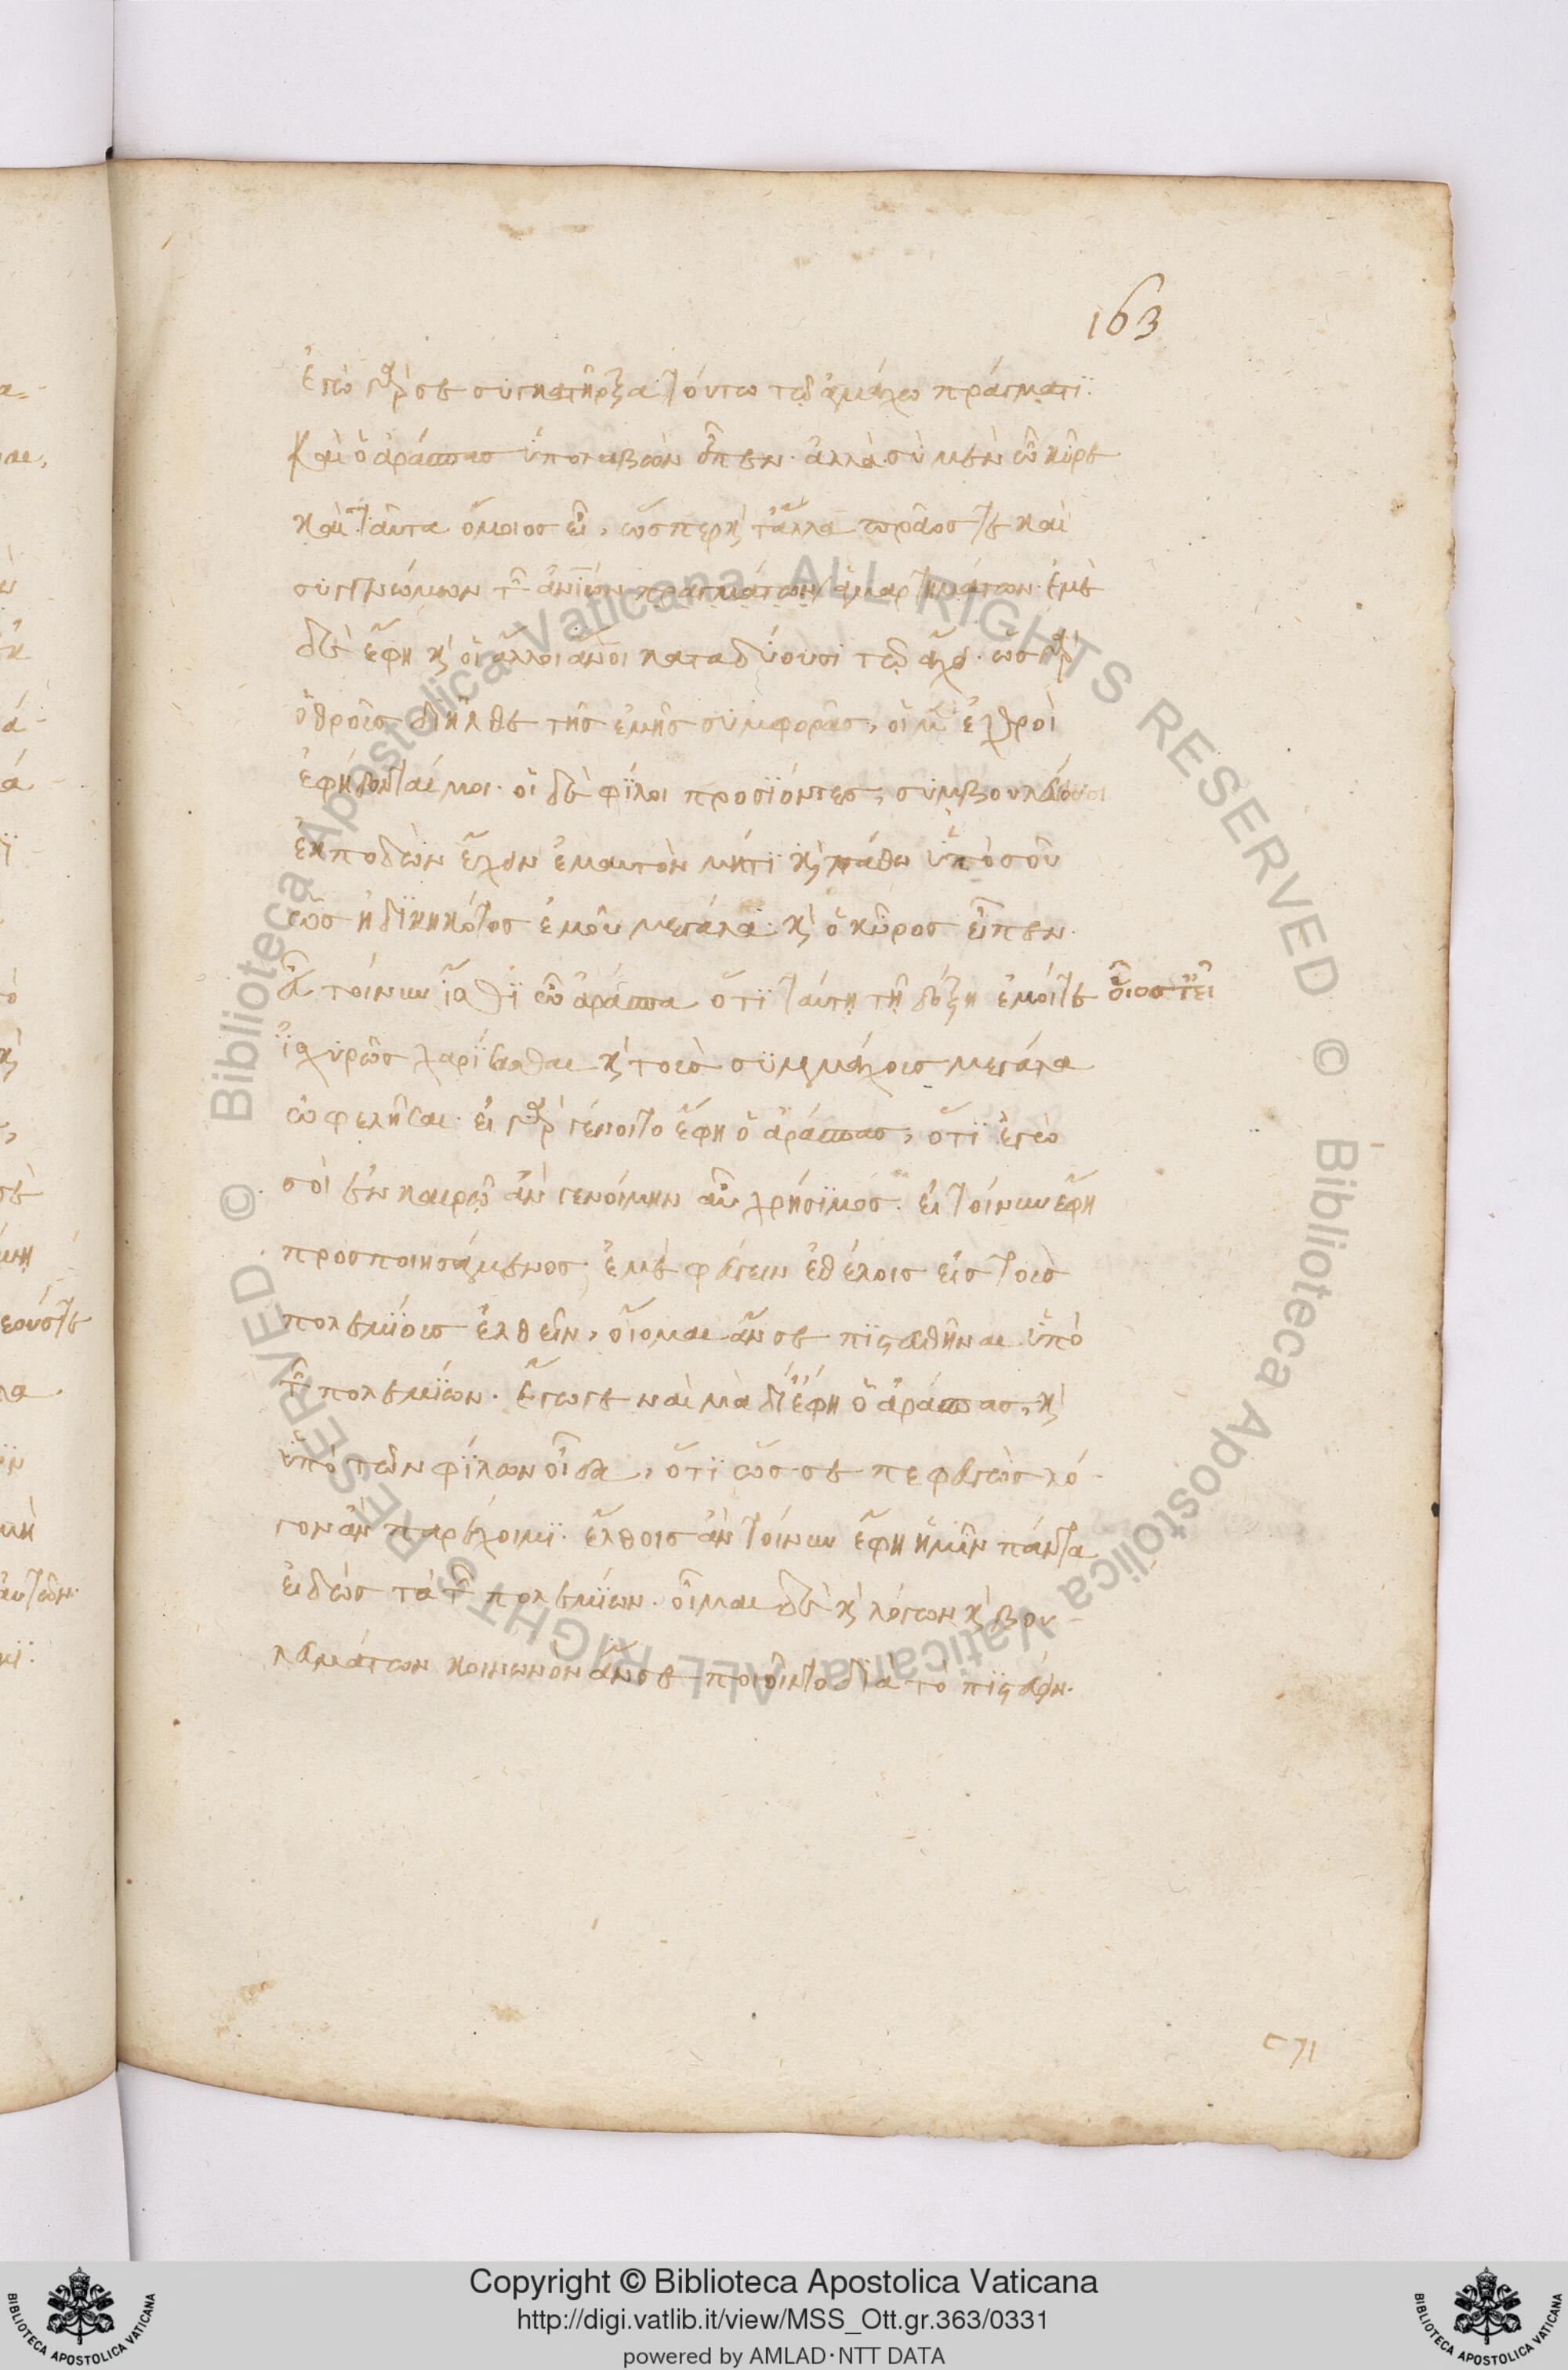 163
ἐγὼ γάρ σε συγκατῆρξα τούτω τῷ ἀμάχω πράγματι.
Καὶ ὁ ἀράσπας ὑπολαβὼν εἶπεν. ἀλλὰ σὺ μὲν ὦ κῦρε
καὶ ταῦτα ὅμοιος εἶ, ὥσπερ κ τἄλλα πρᾶος τε καὶ
συγγνώμων τῶν ἀνίων πραγμάτων ἁμαρτημάτων. ἐμὲ
δὲ ἔφη κ οἱ ἄλλοι ἄνοι καταδύουσι τῷ ἄχει. ὡς γὰρ
ὁ θροῦς διῆλθε τῆς ἐμῆς συμφορᾶς, οἱ μὲν ἐχθροὶ
ἐφήδονταί μοι. οἱ δὲ φίλοι προσιόντες, συμβουλεύουσι
ἐκποδὼν ἔχειν ἐμαυτὸν μήτι κ πάθω ὑπὸ σοῦ
ὡς ἠδικηκότος ἐμοῦ μεγάλα. κ ὁ κῦρος εἶπεν.
εὖ τοίνυν ἴσθι ὦ ἀράσπα ὅτι ταύτη τῇ δόξη ἐμοί τε οἷος τ' εἶ
ἰσχυρῶς χαρίσασθαι κ τοὺς συμμάχους μεγάλα
ὠφελῆσαι. εἰ γὰρ γένοιτο ἔφη ὁ ἀράσπας, ὅτι ἐγώ
σοι ἐν καιρῷ ἂν γενοίμην αὖ χρήσιμος. εἰ τοίνυν ἔφη
προσποιησάμενος ἐμὲ φεύγειν ἐθέλοις εἰς τοὺς
πολεμίους ἐλθεῖν, οἴομαι ἄν σε πιστευθῆναι ὑπὸ
τῶν πολεμίων. ἔγωγε ναὶ μὰ δί' ἔφη ὁ ἀράσπας, κ
ὑπὸ τῶν φίλων οἶδα, ὅτι ὥς σε πεφευγὼς λό-
γον ἂν παρέχοιμι. ἔλθοις ἂν τοίνυν ἔφη ἡμῖν πάντα
εἰδὼς τὰ τῶν πολεμίων. οἶμαι δὲ κ λόγων κ βου-
λευμάτων κοινωνὸν ἄν σε ποιοῖντο διὰ τὸ πιστεύειν.
Copyright © Biblioteca Apostolica Vaticana
http://digi.vatlib.it/view/MSS_Ott.gr.363/0331
powered by AMLAD·NTT DATA